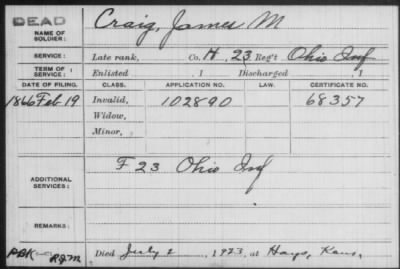 DEAD
NAME OF SOLDIER: Craig, James M
SERVICE: Late rank, Co. H, 23 Reg't Ohio Inf
TERM OF SERVICE: Enlisted , 1 Discharged , 1
DATE OF FILING. CLASS. APPLICATION NO. LAW. CERTIFICATE NO.
1866 Feb 19 Invalid, 102890 68357
Widow,
Minor,
F 23 Ohio Inf
ADDITIONAL SERVICES:
REMARKS:
PBK RJM Died July 2, 1923, at Hays, Kans,